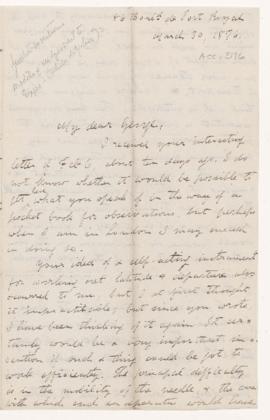 Bould de Port Royal
March 30, 1876.
Acc. 2196
My dear George,
I received your interesting
letter of Feb 6, about ten days ago. I do
not know whether it would be possible to
get what you speak of in the way of a
pocket book for observations, but perhaps
when I am in London I may succeed
in doing so.
Your idea of a self-acting instrument
for working out latitude & departure also
occurred to me, but I at first thought
it impracticable; but since you wrote
I have been thinking of it again. It cer-
tainly would be a very important in-
vention if such a thing could be got to
work efficiently. The principal difficulty
is in the mobility of the needle & the ease
with which such an apparatus would